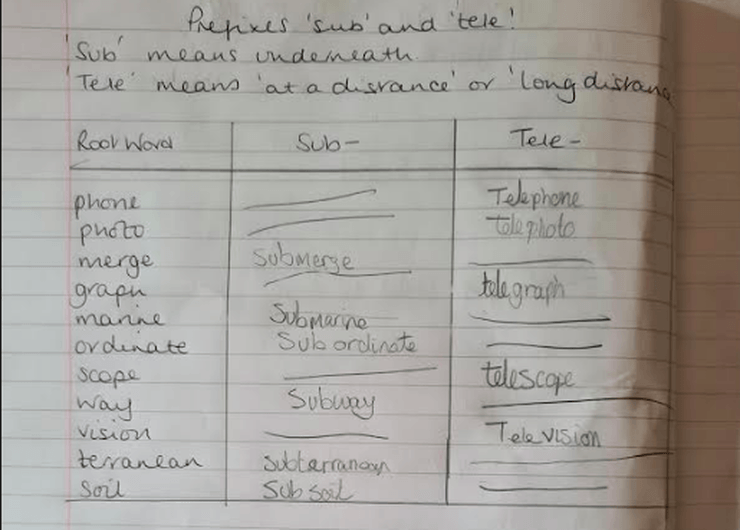 Prefixes 'sub' and 'tele'!
'Sub' means underneath.
'Tele' means 'at a distance' or 'long distanc
Root Word Sub- Tele-
phone Telephone
photo telephoto
merge Submerge
graph telegraph
marine Submarine
ordinate Subordinate
scope telescope
way Subway
vision Television
terranean subterranean
soil Subsoil